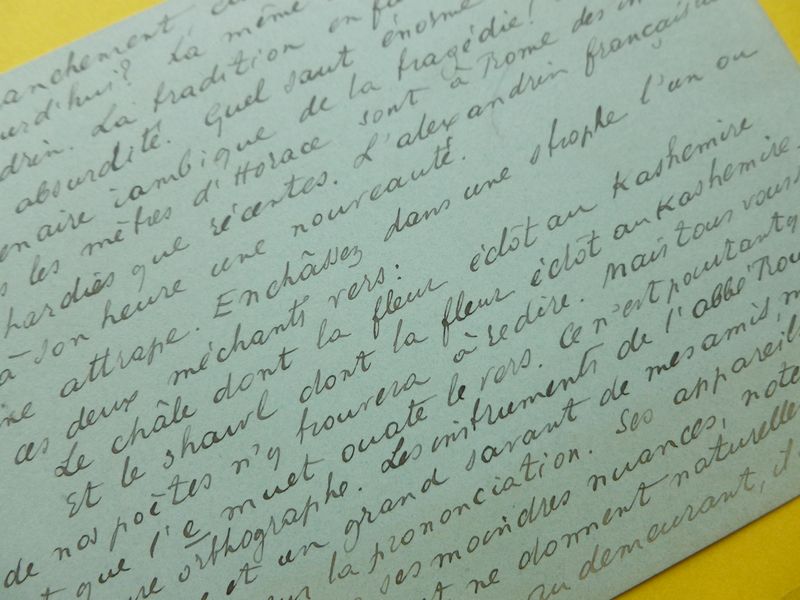 anchement,
urd'hui? La même
drin. La tradition en
absurdité. Quel saut énorme
enaire iambique de la tragédie!
les mètres d'Horace sont à Rome des
hardies que récentes. L'alexandrin français
à son heure une nouveauté.
ne attrape. Enchâssez dans une strophe l'un ou
ces deux méchants vers:
Le châle dont la fleur éclôt au Kashemire
Et le shawl dont la fleur éclôt au Kashemire.
de nos poètes n'y trouvera à redire. Mais tous vous
t que l'e muet ouate le vers. Ce n'est pourtant q
re orthographe. Les instruments de l'abbé Rou
e et un grand savant de mes amis, m
ur la prononciation. Ses appareils
ses moindres nuances, note
t ne donnent naturelle
au demeurant, il